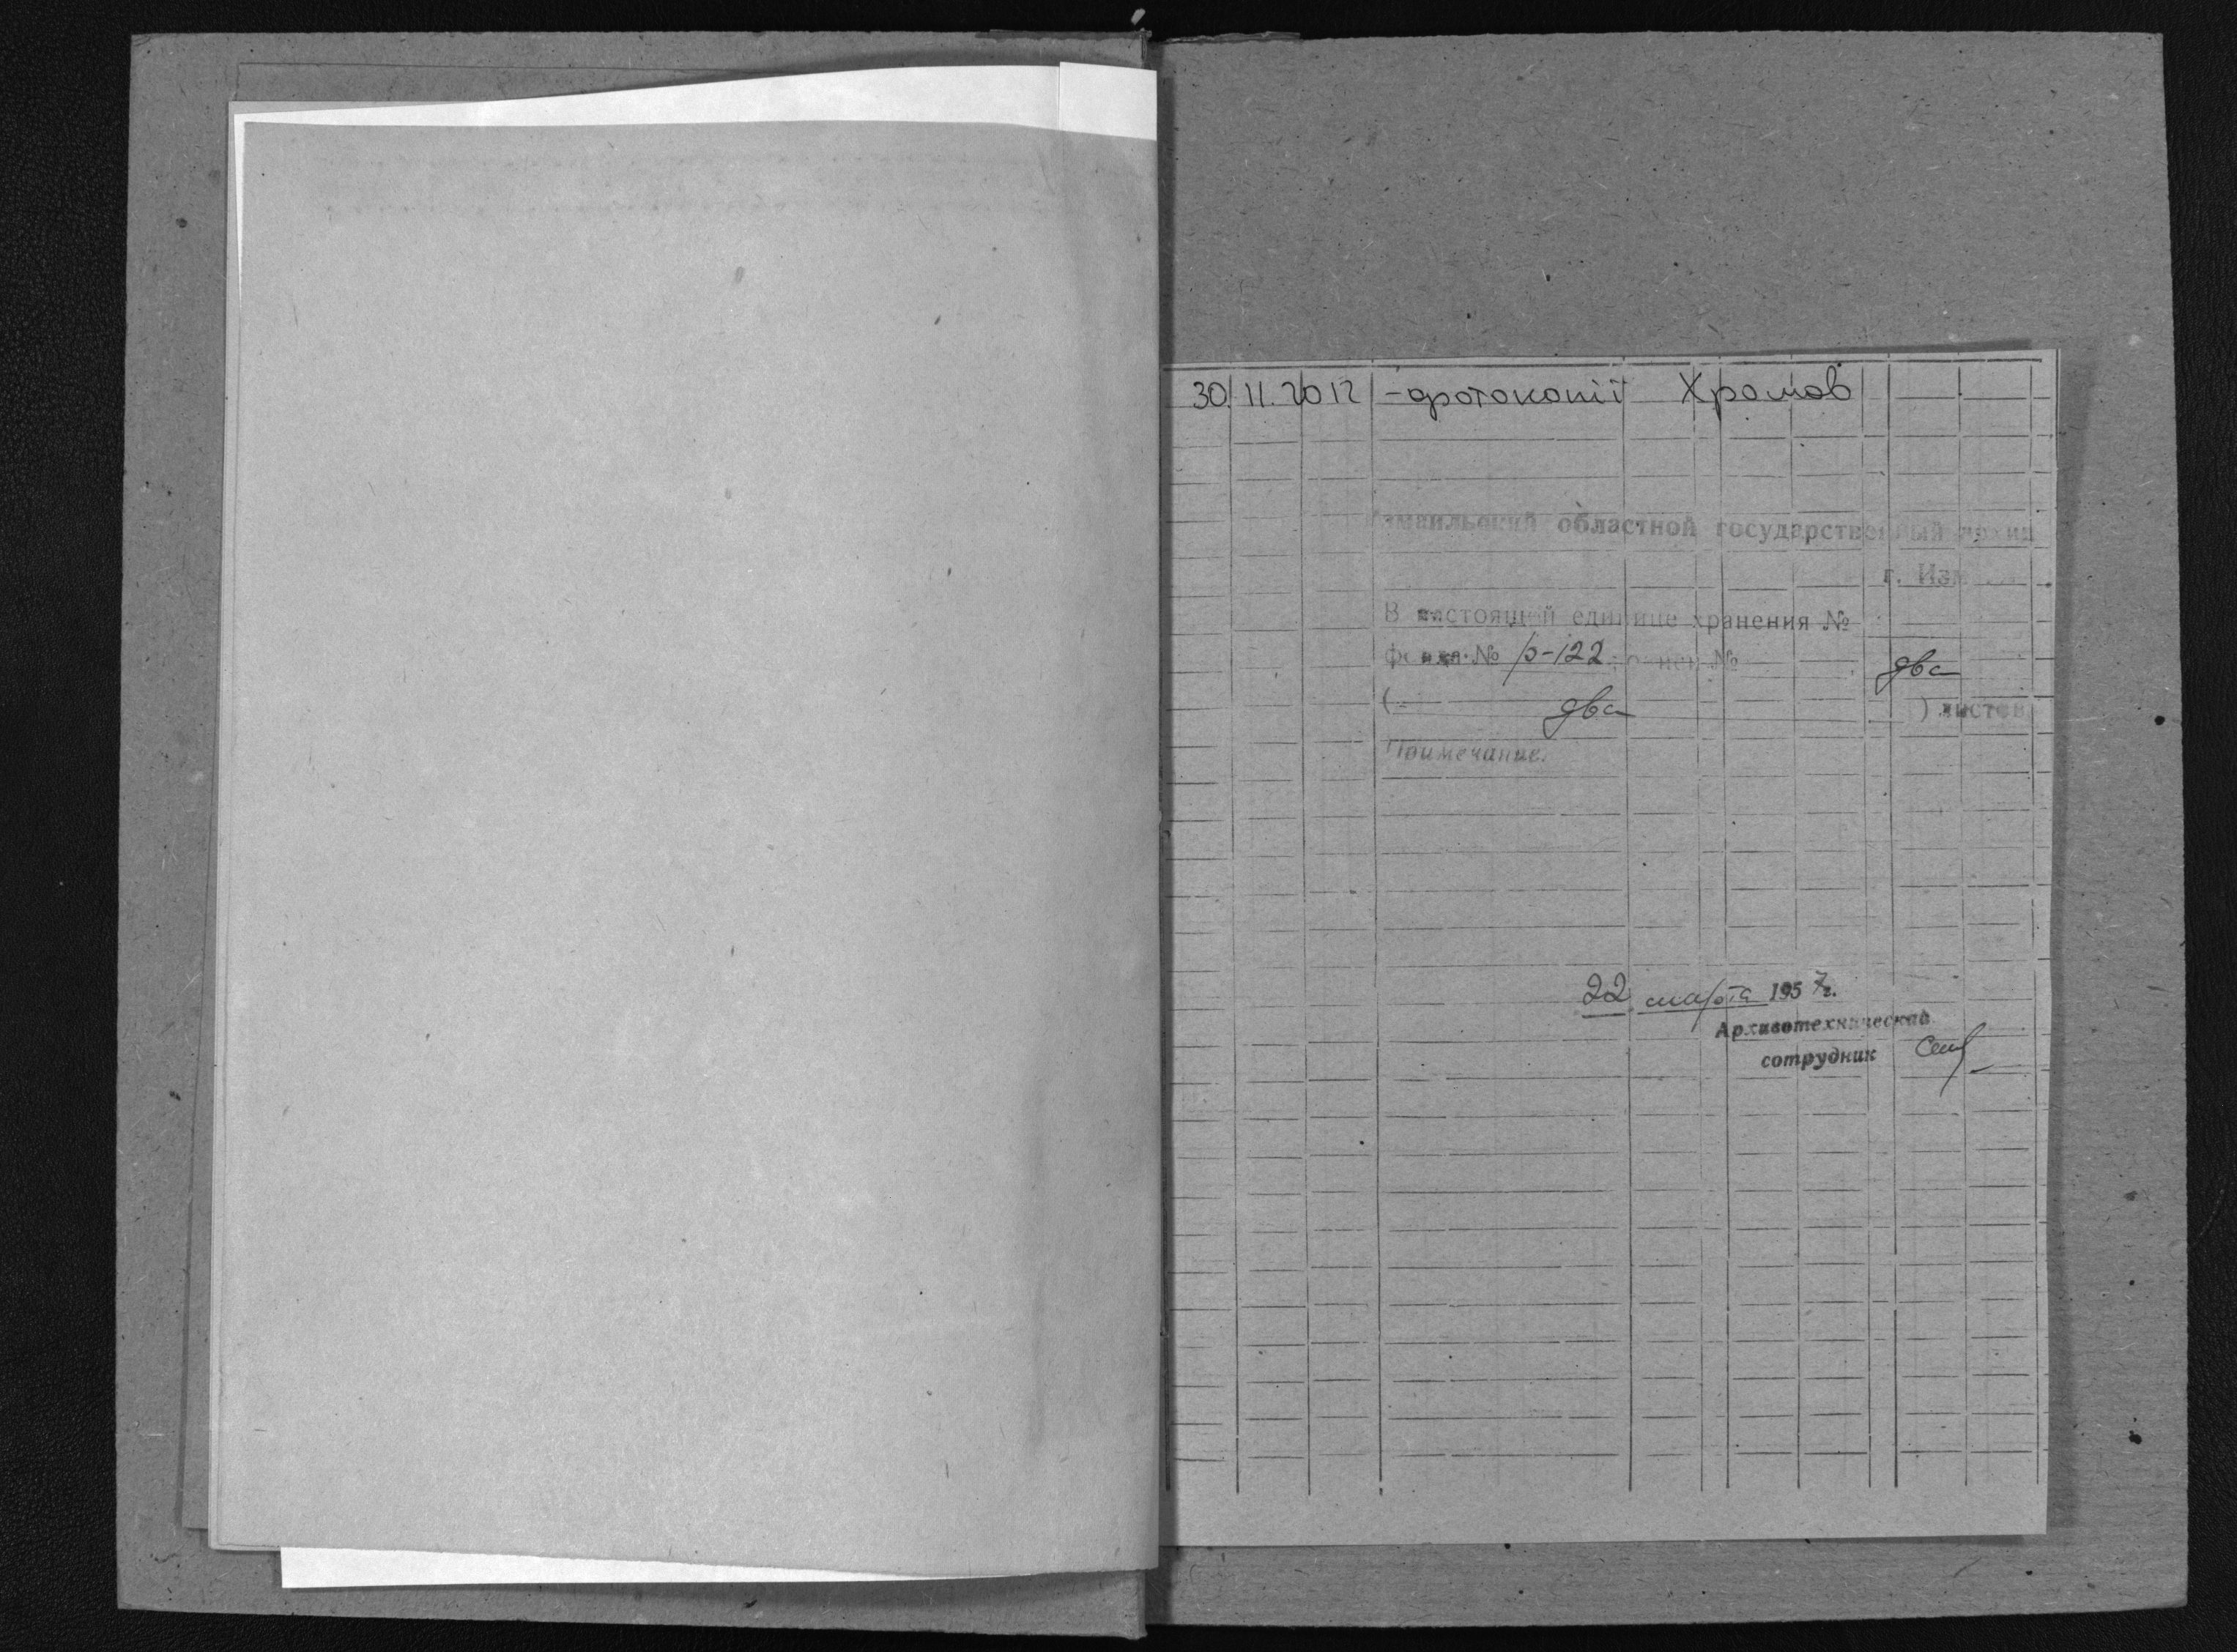 30. 11. 2012 - фотокопії Хромов
Измаильский областной государственный архив
г. Изм
В настоящей единице хранения №
фонда № р-122 два
( два ) листов
Примечание.
22 марта 1957 г.
Архивотехнический
сотрудник